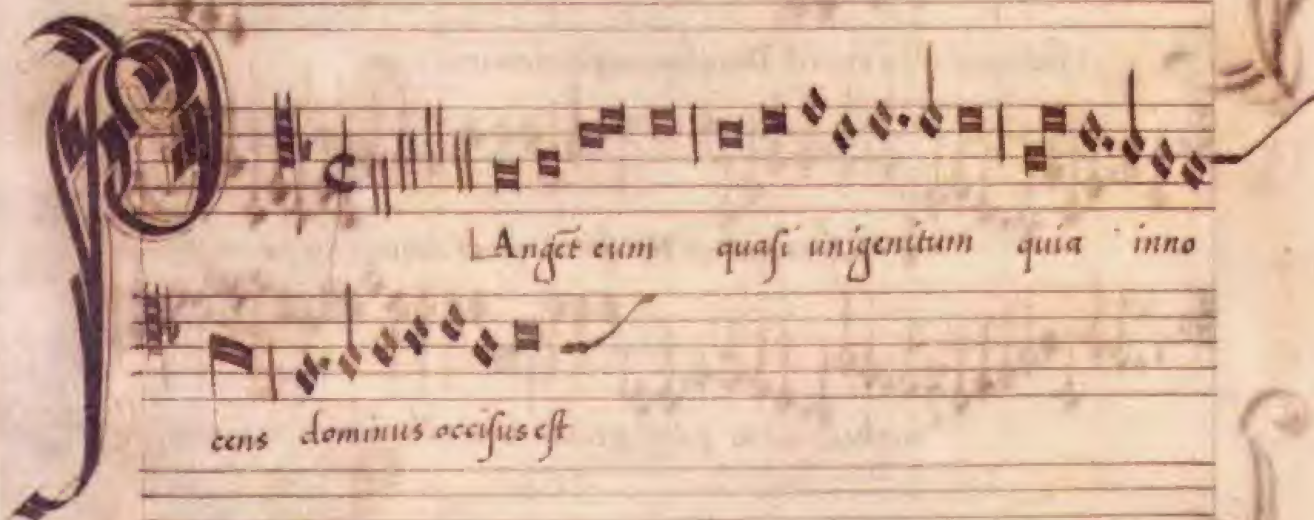 PLAnget eum quasi unigenitum quia inno
cens dominus occisus est